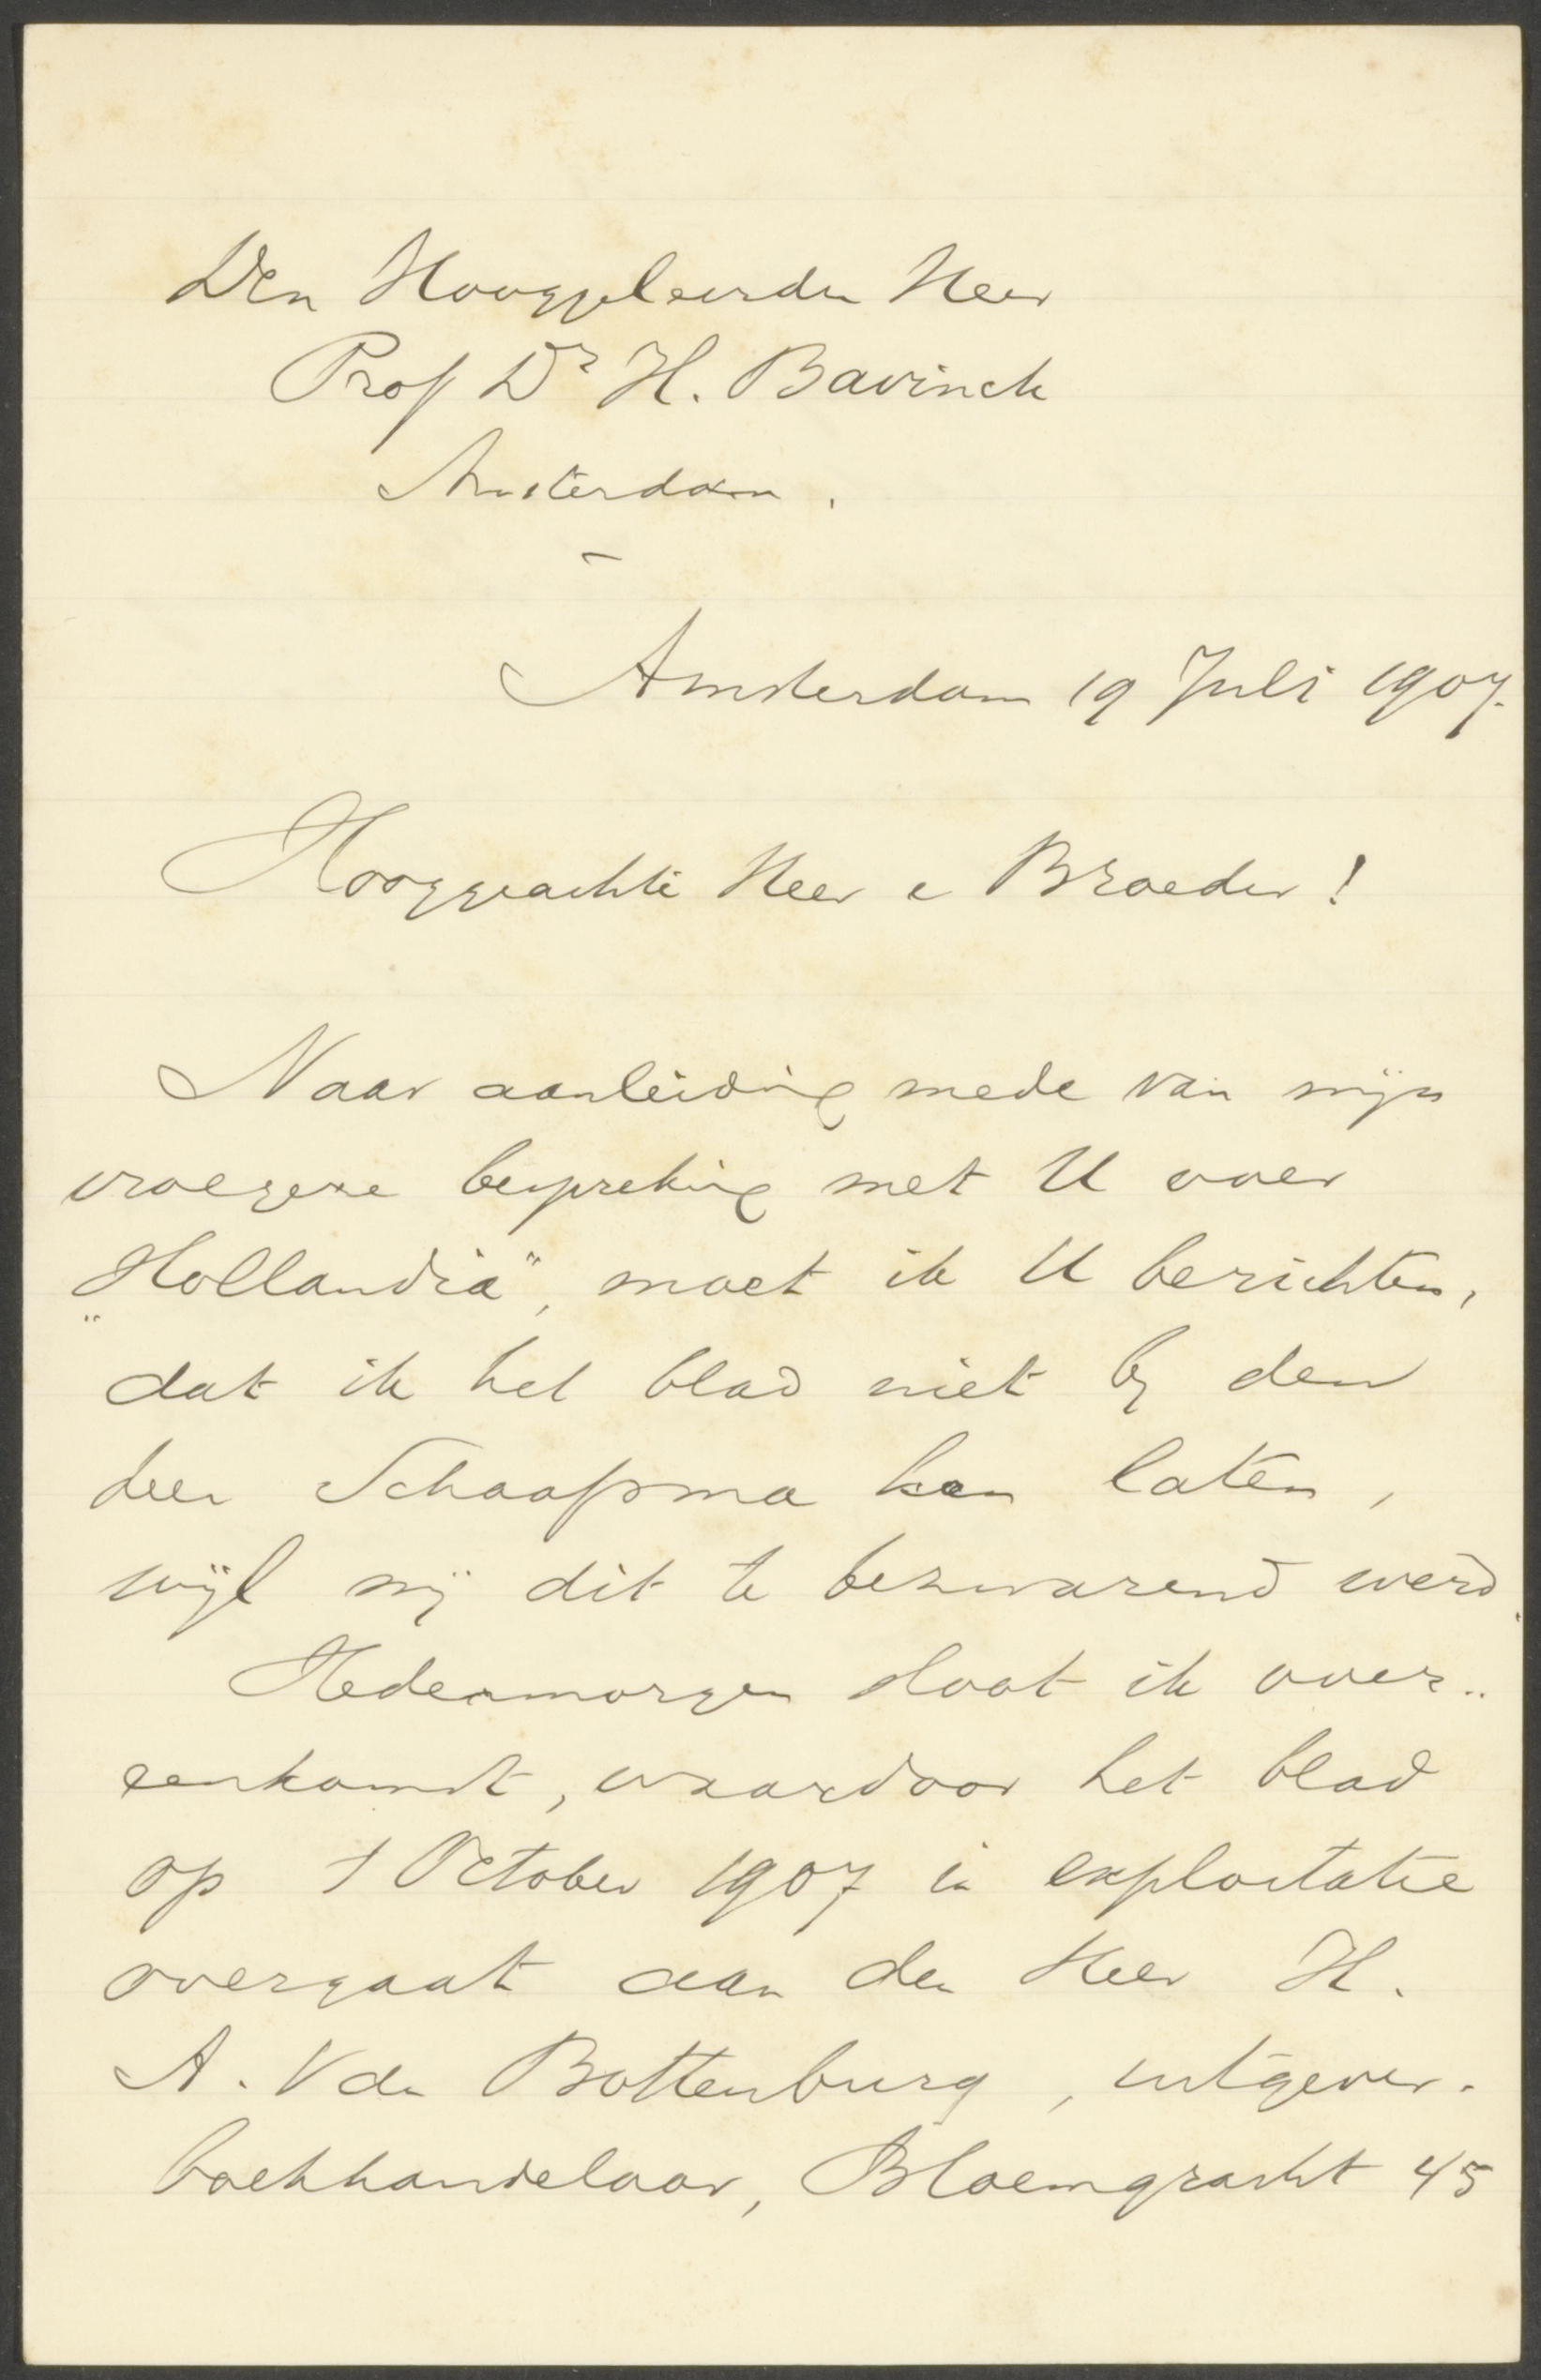 Den Hooggeleerden Heer
Prof Dr H. Bavinck
Amsterdam.
Amsterdam 19 Juli 1907.
Hooggeachte Heer e Broeder!
Naar aanleiding mede van mijn
vroegere bespreking met U over
„Hollandia", moet ik U berichten,
dat ik het blad niet bij den
heer Schaafsma kan laten,
wijl mij dit te bezwarend werd.
Hedenmorgen sloot ik over..
eenkomst, waardoor het blad
op 1 October 1907 in exploitatie
overgaat aan den Heer H.
A. V den Bottenburg, uitgever.
boekhandelaar, Bloemgracht 45